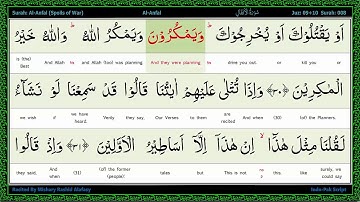 Surah: Al-Anfal (Spoils of War) Al-Anfal سُورَةُ الْأَنْفَال Juz: 09+10 Surah: 008
اَوْ يَقْتُلُوْكَ اَوْ يُخْرِجُوْكَ ؕ وَيَمْكُرُوْنَ وَيَمْكُرُ اللّٰهُ ؕ وَاللّٰهُ خَيْرُ
is (the) Best And Allah And Allah (too) was planning. And they were planning drive you out. or kill you or
الْمٰكِرِيْنَ ﴿٣٠﴾ وَاِذَا تُتْلٰى عَلَيْهِمْ اٰيٰتُنَا قَالُوْا قَدْ سَمِعْنَا لَوْ نَشَآءُ
we wish if we have heard. Verily they say, Our Verses to them are recited And when (30) (of) the Planners.
لَقُلْنَا مِثْلَ هٰذَاۤ ۙ اِنْ هٰذَاۤ اِلَّاۤ اَسَاطِيْرُ الْاَوَّلِيْنَ ﴿٣١﴾ وَاِذْ قَالُوا
they said, And when (31) (of) the former (people). tales but This is not this. like surely, we could say
Recited By Mishary Rashid Alafasy Indo-Pak Script